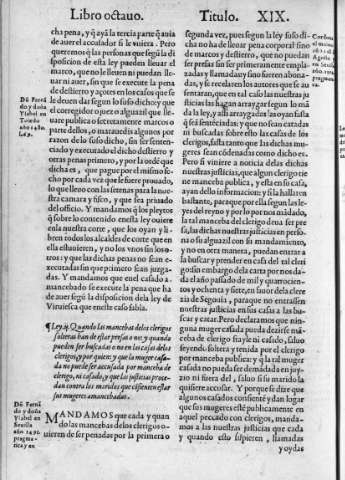 Libro octauo.
Titulo. XIX.
cha pena, y q̃ aya la tercia parte q̃ auia
de auer el accusador si le vuiera. Pero
queremos q̃ las personas que segũ la di
sposicion de esta ley puedan lleuar el
marco, que no le lleuen ni puedan lle
uar ni auer, sin que se execute la pena
de destierro y açotes en los casos que se
le deuen dar segun lo suso dicho: y que
el corregidor o juez o alguazil que lle-
uare publica o secretamente marcos o
parte dellos, o marauedis algunos por
razon de lo suso dicho, sin ser senten-
ciado y executado el dicho destierro y
otras penas primero, y por la ordẽ que
dicha es, que pague por el mismo fe-
cho por cada vez que le fuere prouado,
lo que lleuo con las setenas para la nue-
stra camara y fisco, y que sea priuado
del officio. Y mandamos q̃ los pleytos
q̃ sobre lo contenido en esta ley ouiere
en la nuestra corte, que los oyan y li-
bren todos los alcaldes de corte que en
ella estuuieren, y no los vnos sin los o-
tros: y que las dichas penas no sean e-
xecutadas sin que primero sean juzga-
das. Y mandamos que el casado a-
mancebado se execute la pena que ha
de auer segũ la disposicion dela ley de
Viruiesca que en este caso fabla.
¶ Ley.ij. Quando las mancebas delos clerigos
solteras han de estar presas o no: y quando
pueden ser buscadas o no en las casas delos
clerigos, y por quien: y que la muger casa-
da no puede ser accusada por manceba de
clerigo, ni casado, y que las justicias proce-
dan contra los maridos que consienten estar
sus mugeres amancebadas.
MANDAMOS que cada y quan
do las mancebas delos clerigos o-
uieren de ser penadas por la primera o
Dõ Fernã
do y doña
Ysabel en
Toledo
año 1480.
Ley.
Dõ Fernã
do y doña
Ysabel en
Seuilla
año 1491.
pragma-
tica.
segunda vez, pues segun la ley suso di-
cha no ha de lleuar pena corporal sino
de marcos y destierro, que no puedan
ser presas sin ser primeramente empla-
zadas y llamadas y sino fueren abona-
das, y se recelaren los accusadores que se
ausentaran, que en tal caso las nuestras ju
sticias las hagan arraygar segun lo mã
da la ley, y assi arraygadas las oyan fasta
q̃ sea sentẽciadas: y que no sean catadas
ni buscadas sobre ello las casas de los
clerigos, fasta tanto que las dichas mu
geres sean cõdenadas como dicho es.
Pero si viniere a noticia delas dichas
nuestras justicias, que algun clerigo tie
ne manceba publica, y esta en su casa,
ayan dello informacion: y si la hallaren
bastante, paraque por ella segun las le-
yes del reyno y por lo por nos mãdado,
la tal manceba del clerigo deua ser pre
sa, las dichas nuestras justicias en perso-
na o su alguazil con su mandamiento,
y no en otra manera, puedan entrar a
la buscar y prender en casa del tal cleri
go: sin embargo dela carta por nos da-
da el año passado de mil y quatrociẽ-
tos y ochenta y siete, en fauor dela clere
zia de Segouia, paraque no entrassen
nuestras justicias en sus casas a las bus-
car y catar. Pero declaramos que nin-
guna muger casada pueda dezirse mã
ceba de clerigo frayle ni casado, saluo
seyendo soltera y tenida por el clerigo
por manceba publica: y q̃ la tal muger
casada no pueda ser demãdada en juy-
zio ni fuera del, saluo si su marido la
quisiere accusar. Y porque se dize que
algunos casados consientẽ y dan lugar
que sus mugeres estẽ publicamente en
aquel peccado con clerigos, manda-
mos a las nuestras justicias que cada
y quando esto supieren, llamadas
y oydas